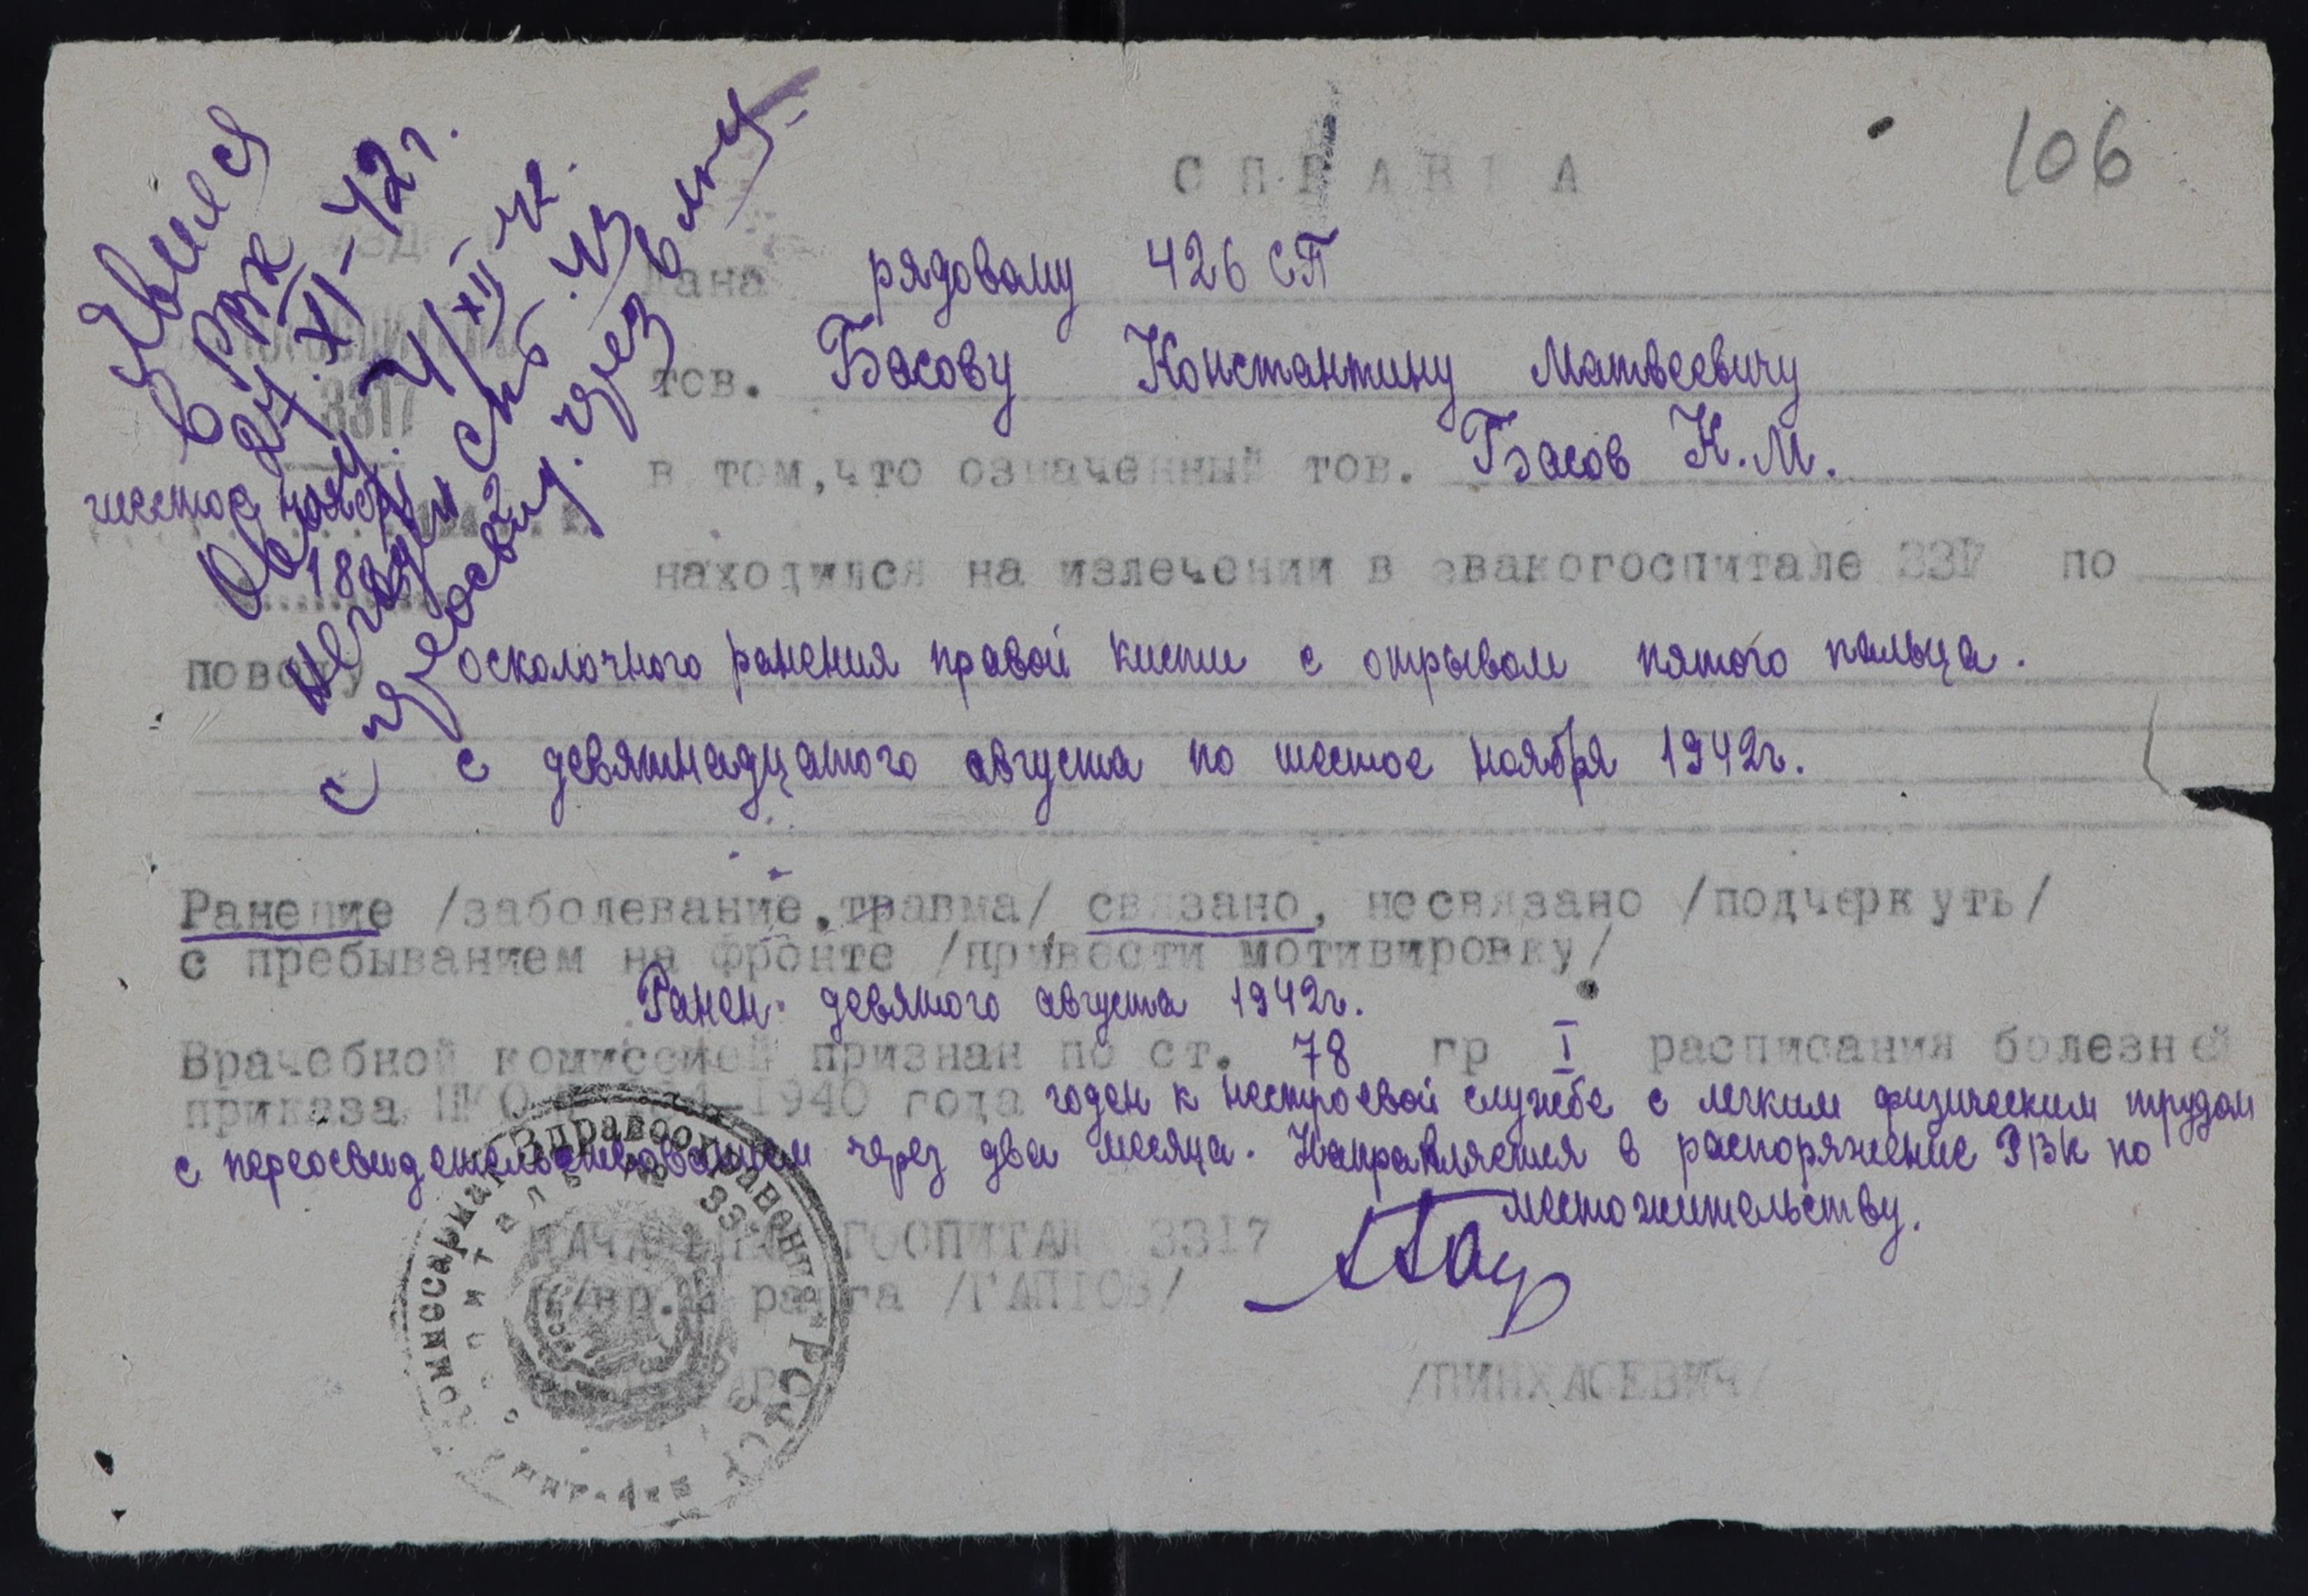 106
СПРАВКА
Явился
в РВК
24.XI-42г.
3317
шестое ноября 2
189
Дана рядовому 426 СП
тов. Басову Константину Матвеевичу
в том, что означенный тов. Басов К.М.
находился на излечении в эвакогоспитале 3317 по
поводу осколочного ранения правой кисти с отрывом пятого пальца.
с девятнадцатого августа по шестое ноября 1942г.
Ранение /заболевание, травма/ связано, несвязано /подчеркнуть/
с пребыванием на фронте /привести мотивировку/
Ранен девятого августа 1942г.
Врачебной комиссией признан по ст. 78 гр I расписания болезней
приказа НКО 1940 года годен к нестроевой службе с легким физическим трудом
с переосвидетельствованием через два месяца. Направляется в распоряжение РВК по
местожительству.
НАЧАЛЬНИК ГОСПИТАЛЯ 3317
ранга /ГАПТОВ/
/ПИНХАСЕВИЧ/
Комиссариат Здравоохранения РСФСР
госпиталь № 33